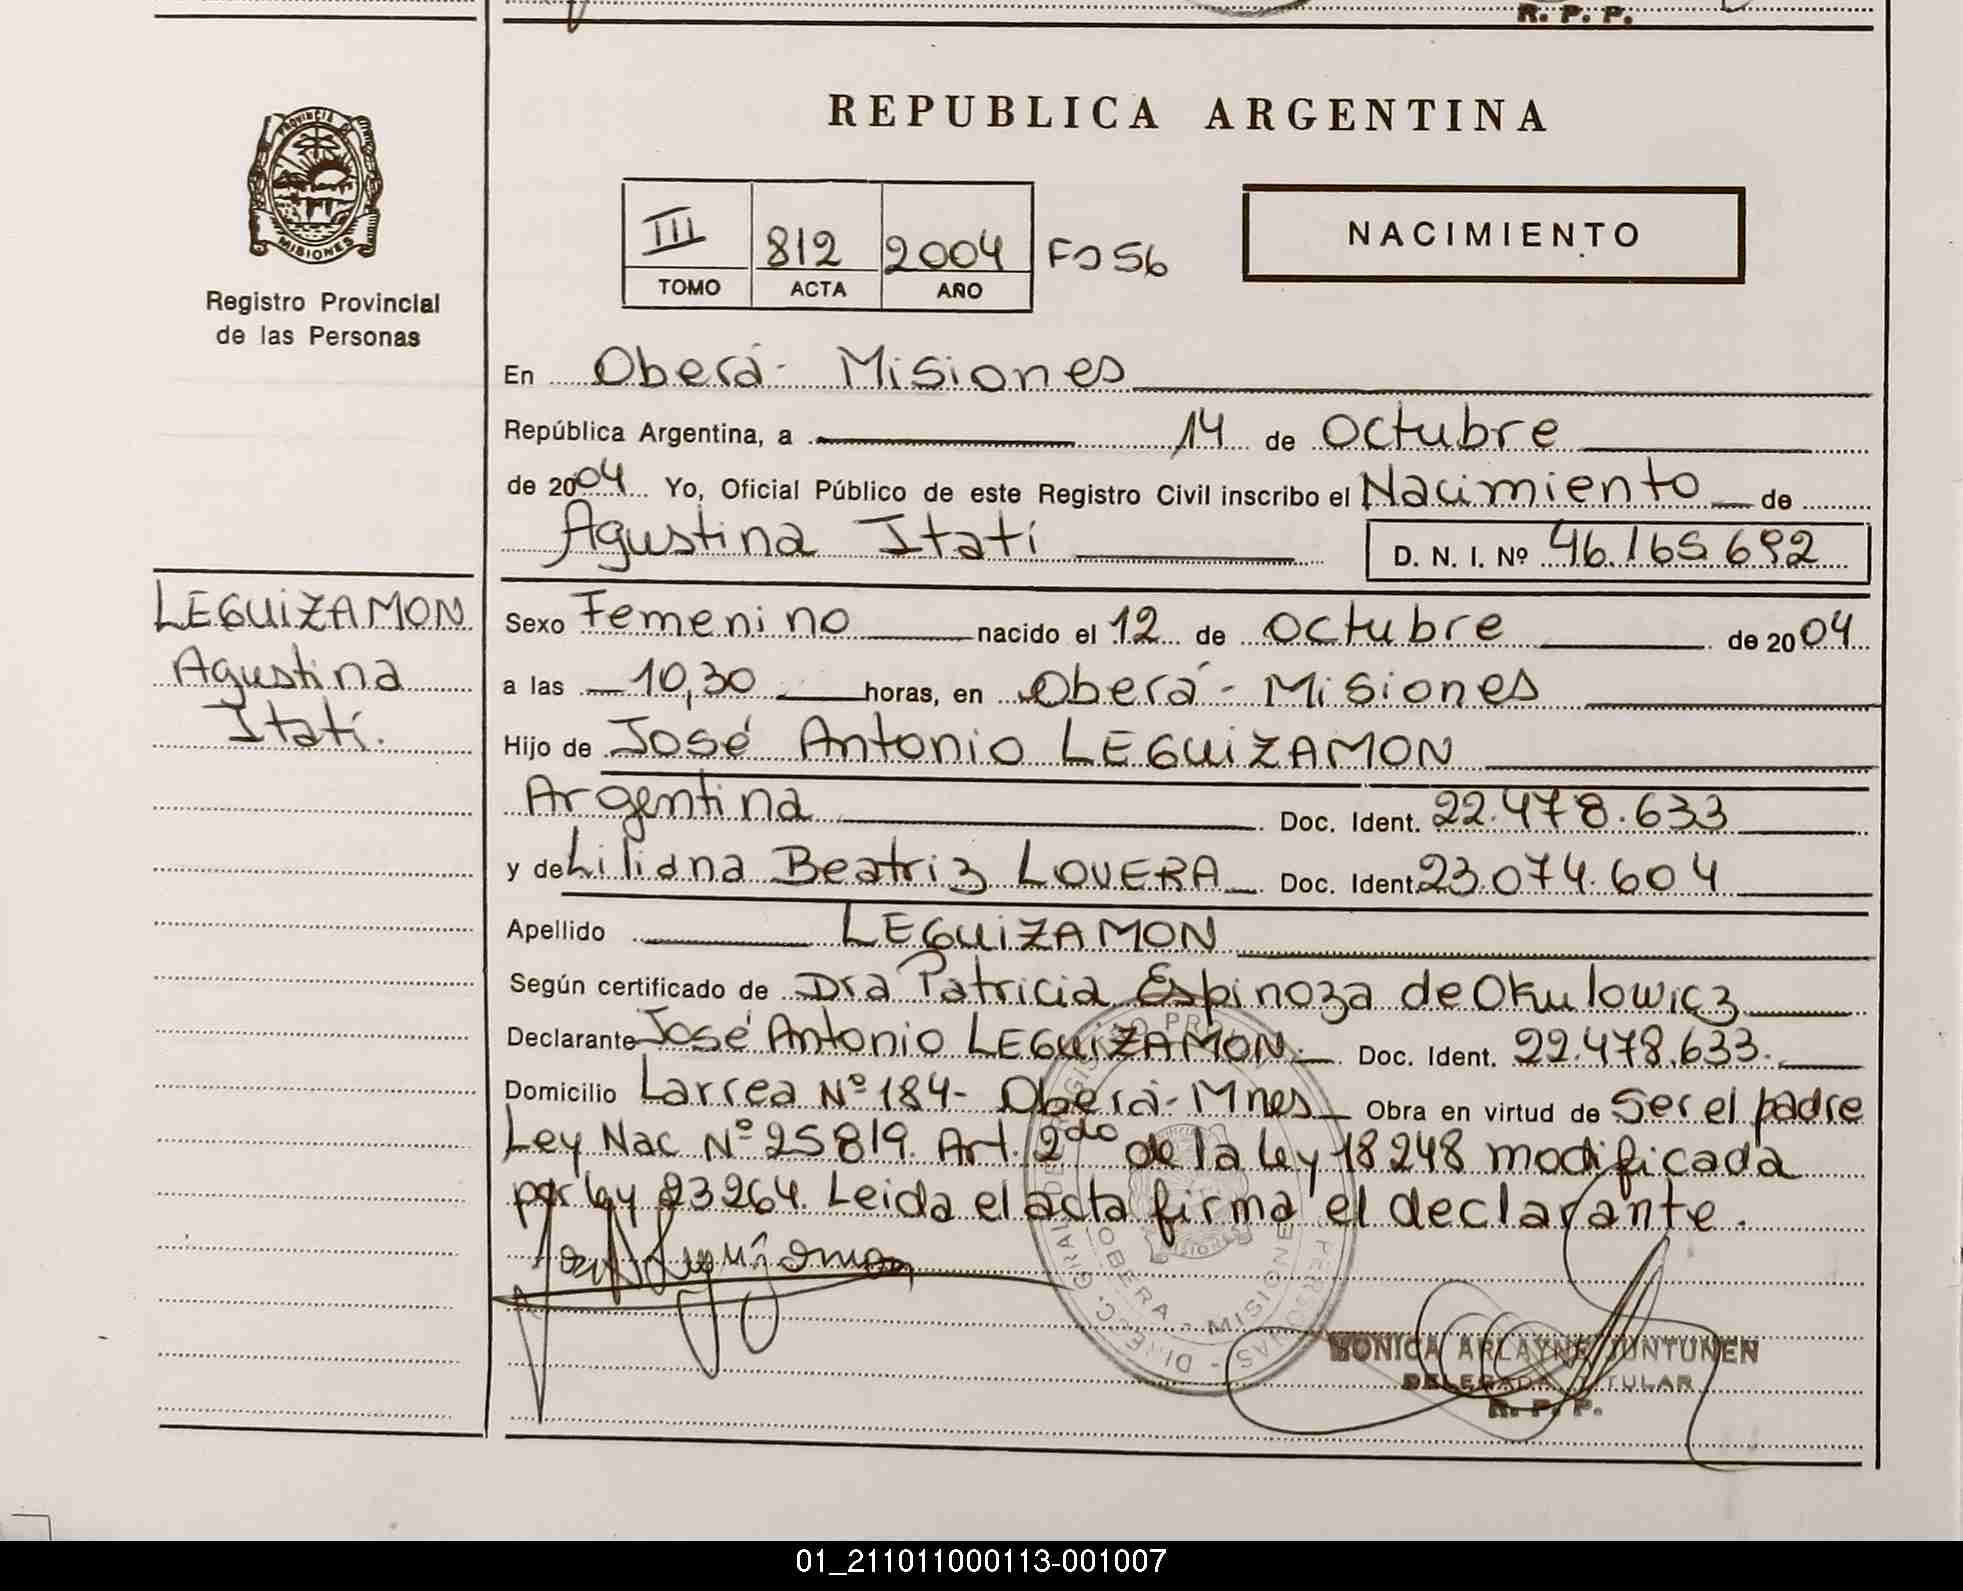 R. P. P.
REPUBLICA ARGENTINA
PROVINCIA DE
MISIONES
Registro Provincial
de las Personas
III 812 2004 Fo 56
TOMO ACTA AÑO
NACIMIENTO
En Oberá - Misiones
República Argentina, a 14 de Octubre
de 2004 Yo, Oficial Público de este Registro Civil inscribo el Nacimiento de
Agustina Itatí D. N. I. Nº 46.165.692
LEGUiZAMON
Agustina
Itatí.
Sexo Femenino nacido el 12 de Octubre de 2004
a las 10,30 horas, en Oberá - Misiones
Hijo de José Antonio LEGUiZAMON
Argentina Doc. Ident. 22.478.633
y de Liliana Beatriz LOVERA Doc. Ident. 23.074.604
Apellido LEGUiZAMON
Según certificado de Dra Patricia Espinoza de Okulowicz
Declarante José Antonio LEGUiZAMON. Doc. Ident. 22.478.633.
Domicilio Larrea Nº 184 - Oberá - Mnes Obra en virtud de Ser el padre
Ley Nac Nº 25819. Art. 2do de la Ley 18248 modificada
por Ley 23264. Leida el acta firma el declarante.
OBERA - MISIONES
MONICA ARLAYNE JUNTUNEN
DELEGADA TITULAR
R. P. P.
01_211011000113-001007